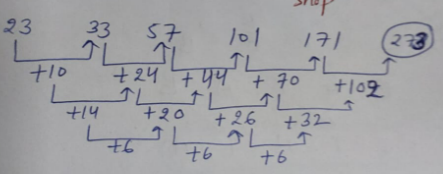 shop
23 33 57 101 171 273
+10 +24 +44 +70 +102
+14 +20 +26 +32
+6 +6 +6